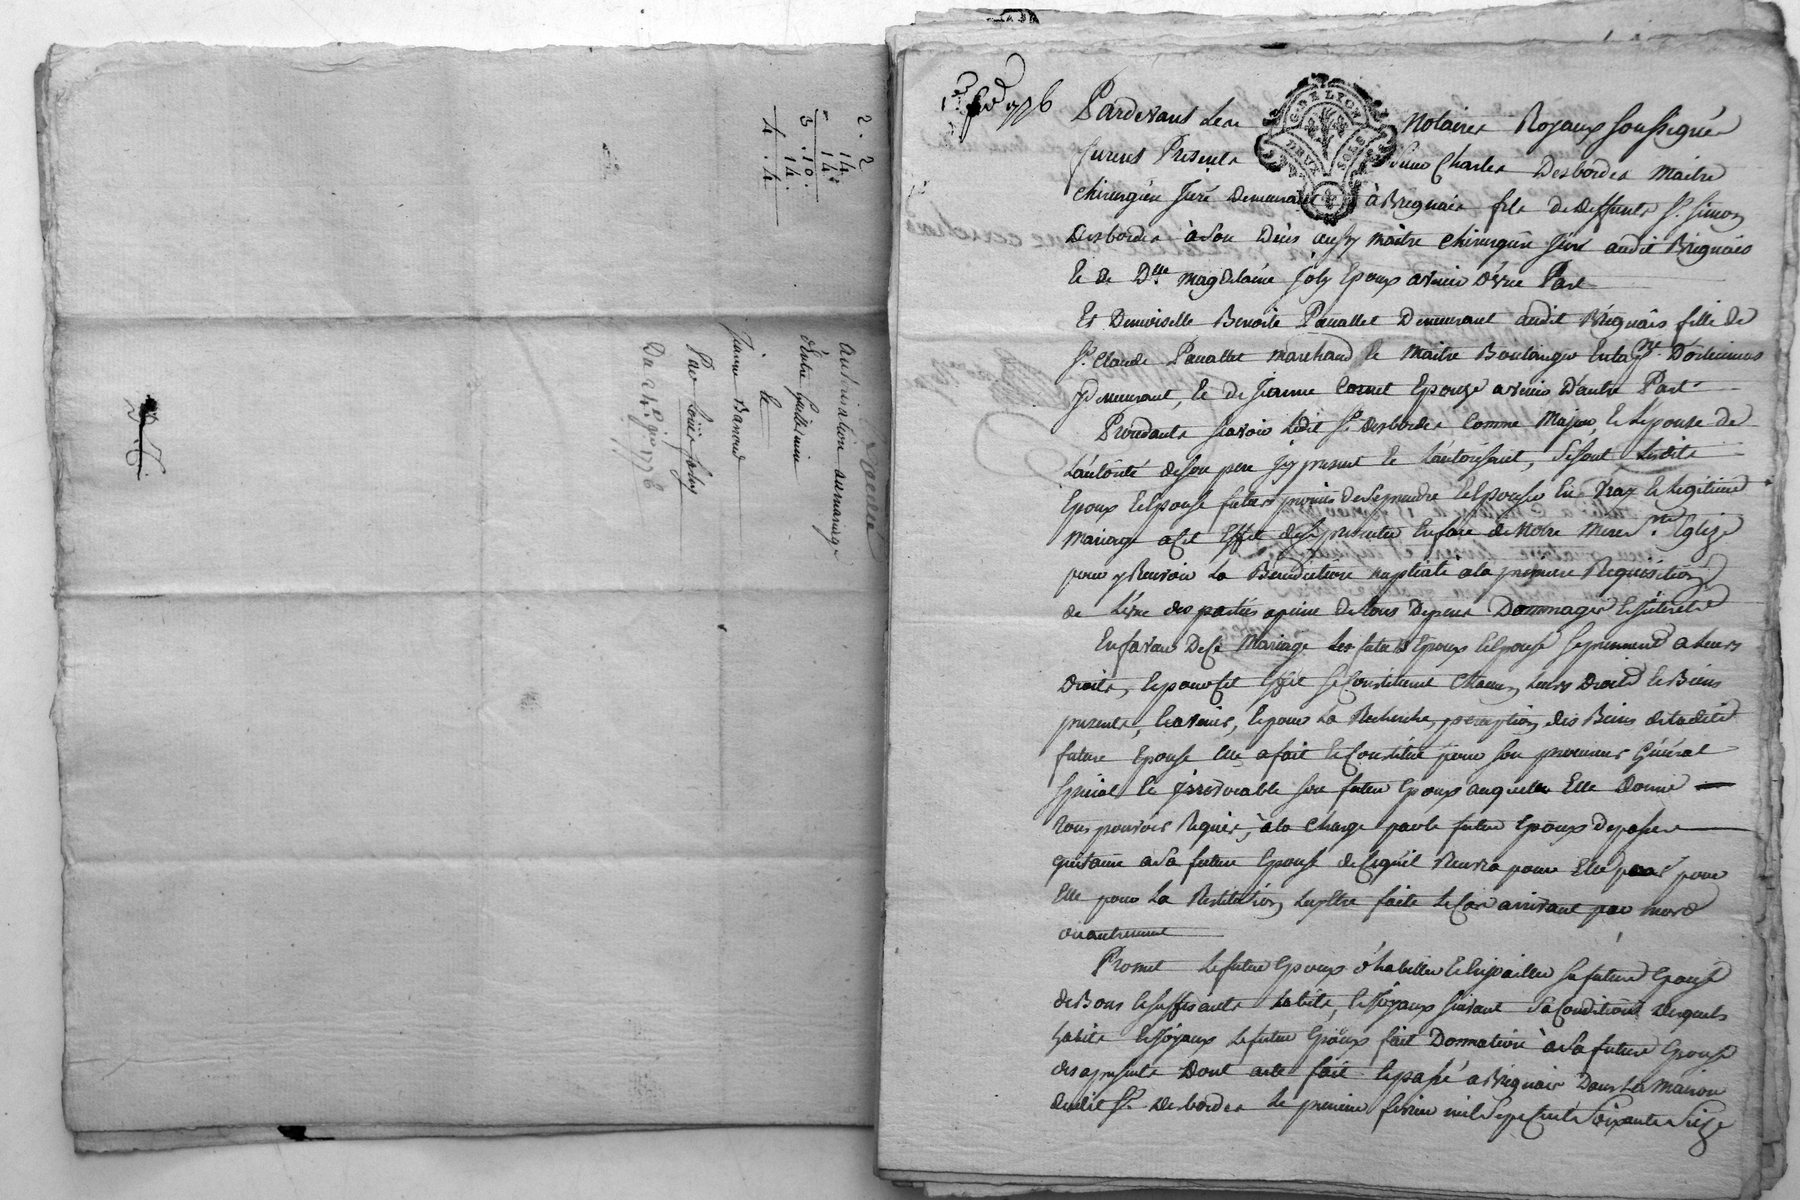 2. 2
14
14
3. 10.
14.
4. 4
Autorisation au mariage
d'entre Guillermin
Et
Jeanne Banoud
Par Louis
Du 24e 1776
1er fev. 1776
G. DE LYON
DEUX SOLS
Pardevant Les Notaires Royaux soussignés
furent Présents Sieur Charles Desbordes Maitre
chirurgien Juré Demeurant à Brignais fils de deffunts Sr. Simon
Desbordes à son Décès aussy maitre chirurgien Juré audit Brignais
Et de Dlle Magdelaine Joly Epoux avenir d'vne Part
Et Demoiselle Benoite Demeurant audit Brignais fille de
Sr. Claude marchand Et Maitre Boulanger
y demeurant, Et de Jeanne Cornet Epouze avenir d'autre Part
Procedants sçavoir Ledit Sr. Desbordes Comme Majeur, Et L'epouse de
L'autorité de son pere Icy present Et L'autorisant, se sont Lesdits
Epoux Et Epouse futurs promis de se prendre Et Epouser En vray Et Legitime
Mariage a Cet Effet de se presenter En face de Notre Mere Ste Eglize
pour y Recevoir La Benediction nuptiale a la premiere Requisition
de L'vne des parties a peine de tous Depens Dommages Et Interets
En faveur De Ce Mariage Les futurs Epoux Et Epouse se prennent a Leurs
Droits, Et pour Cet Effet se Constituent Chacun Leurs Droits Et Biens
presents, Et avenir, Et pour La Recherche, perception, des Biens de ladite
future Epouse Elle a fait Et Constitué pour son procureur General
special Et Irrevocable son futur Epoux auquel Elle Donne
tous pouvoirs Requis, à la Charge par le futur Epoux de passer
quittance a sa future Epouse de Ce qu'il Recevra pour Elle pour
Elle pour La Restitution Luy Etre faite Le Cas arrivant par mort
ou autrement
Promet Le futur Epoux d'habiller Et Enjoailler sa future Epouse
de Bons Et suffisants habits, Et Joyaux suivant sa Condition Desquels
habits Et Joyaux Le futur Epoux fait Donnation à sa future Epouse
des apresent Dont acte fait Et passé a Brignais Dans La Maison
dudit Sr. Desbordes Le premier fevrier mil sept Cent soixante seize